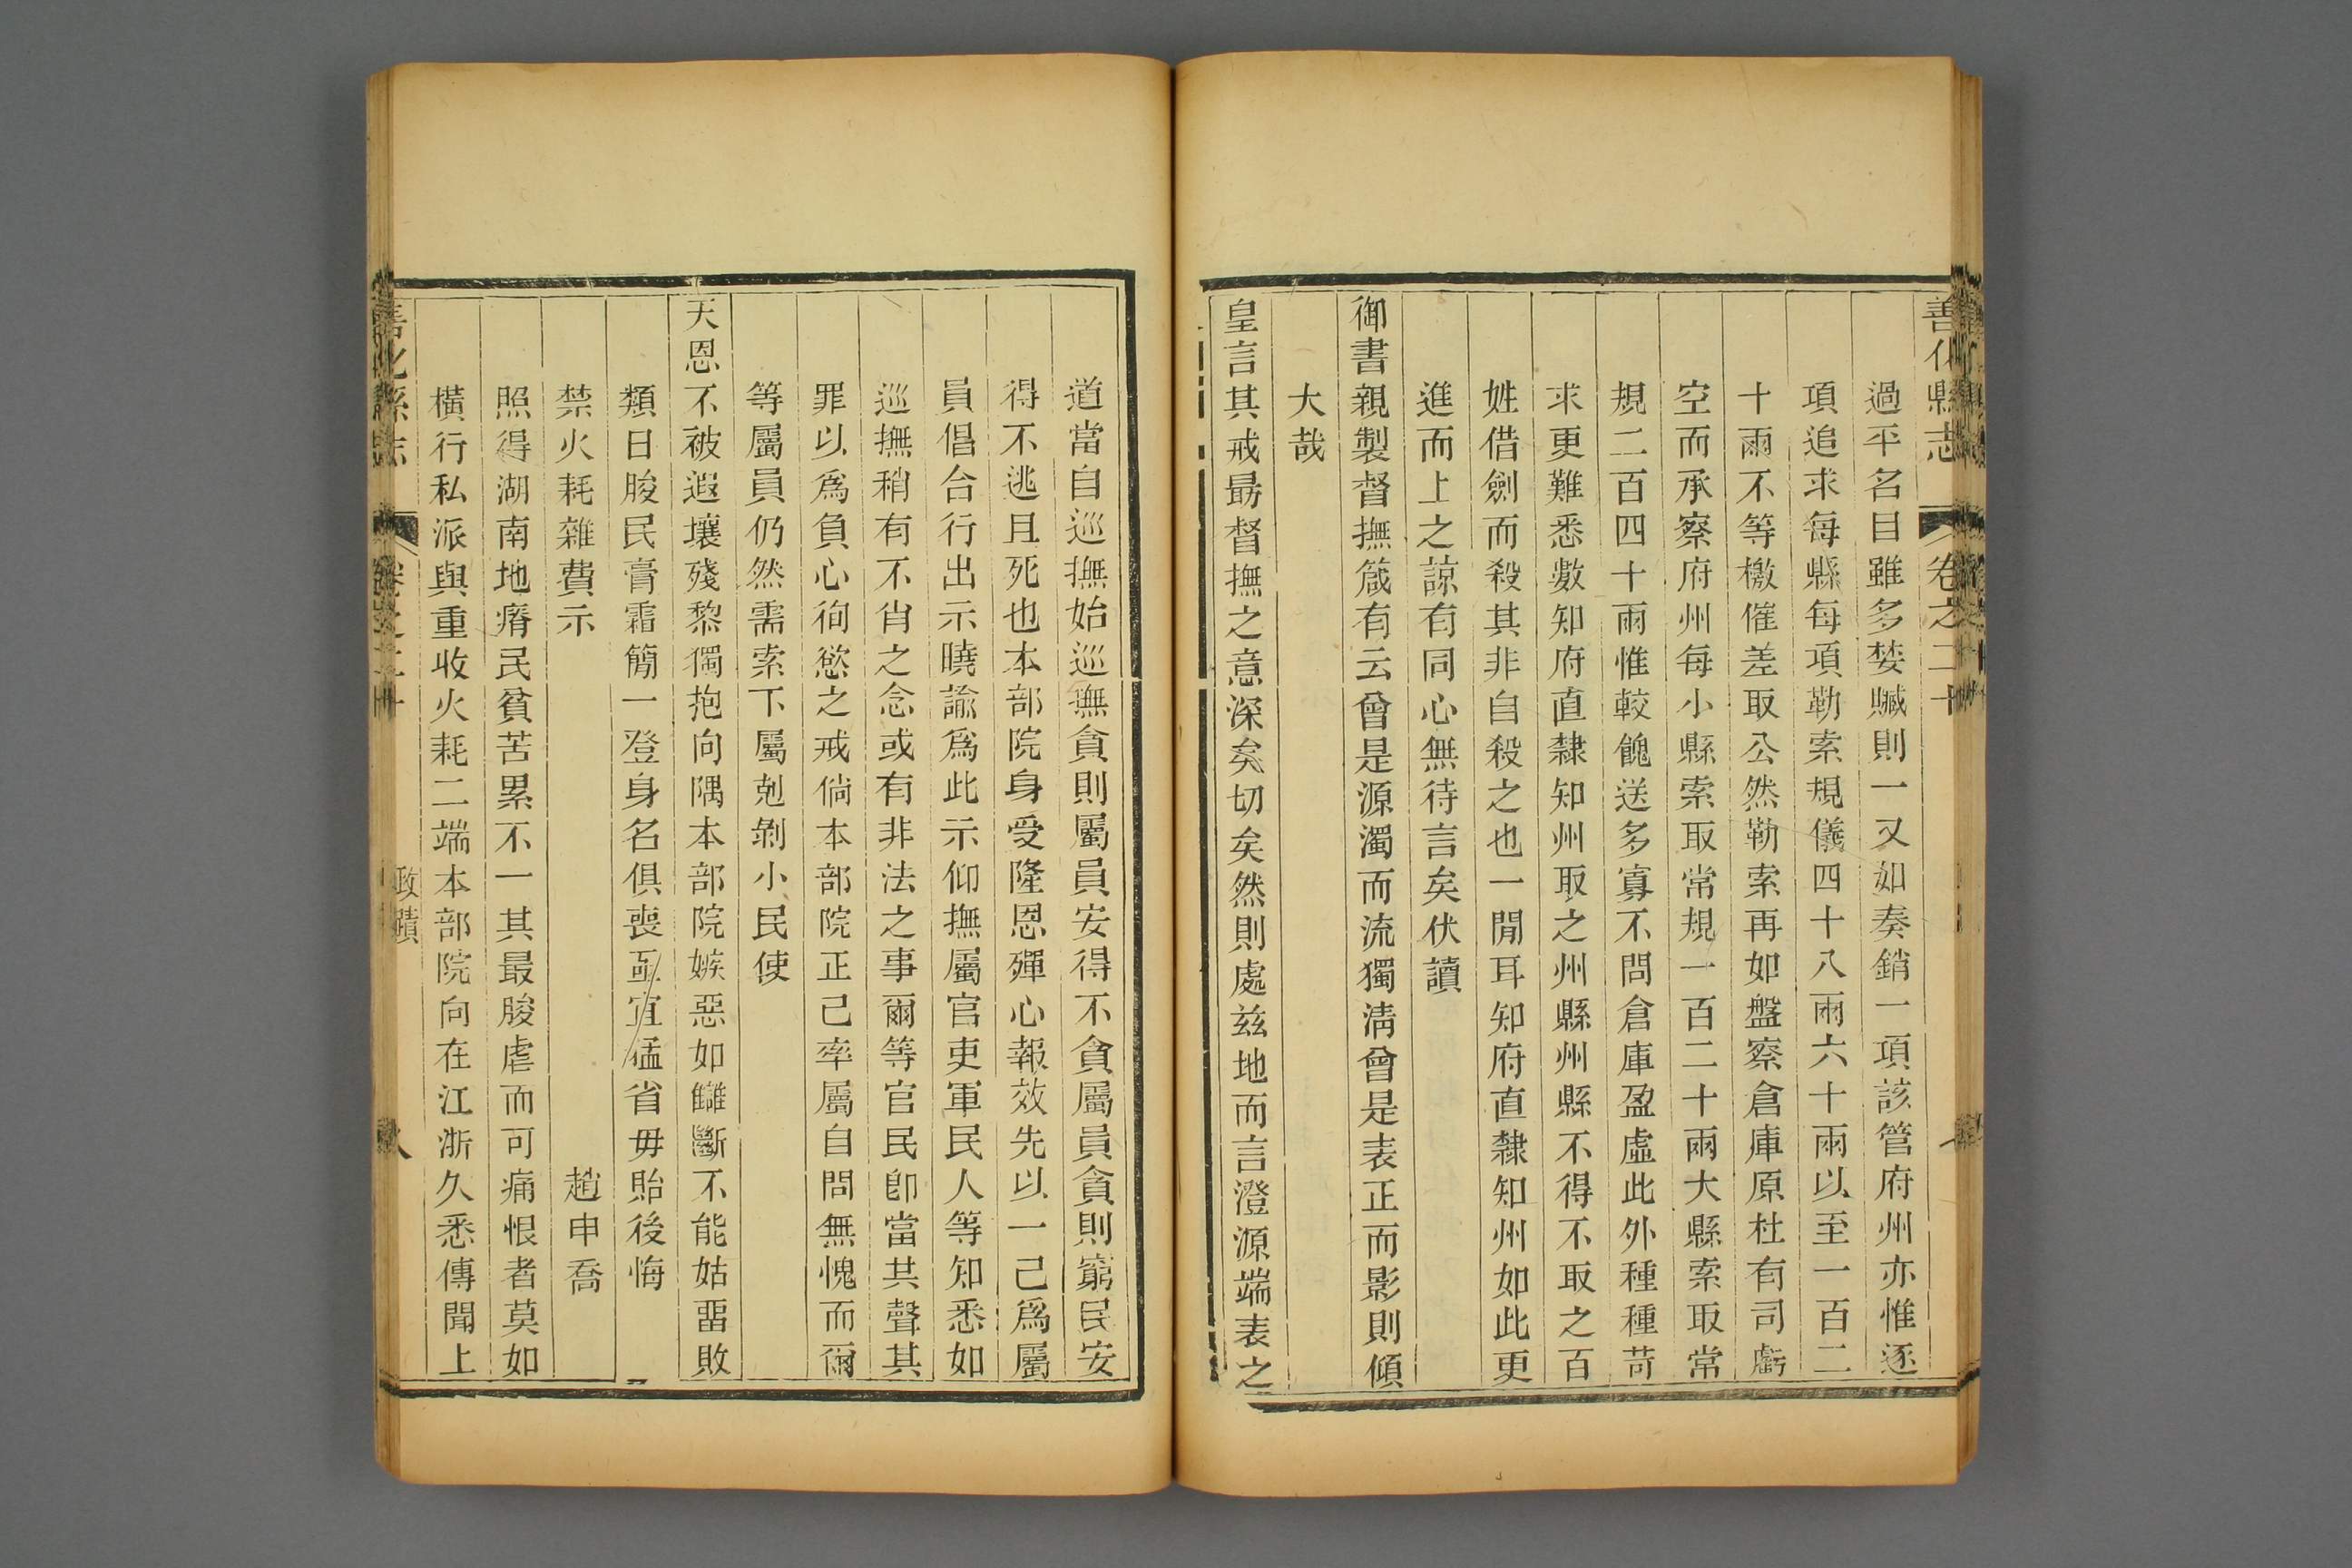 善化縣志 卷之二十
過平名目雖多婪贓則一又如奏銷一項該管府州亦惟逐
項追求每縣每項勒索規儀四十八兩六十兩以至一百二
十兩不等檄催差取公然勒索再如盤察倉庫原杜有司虧
空而承察府州每小縣索取常規一百二十兩大縣索取常
規二百四十兩惟較餽送多寡不問倉庫盈虛此外種種苛
求更難悉數知府直隸知州取之州縣州縣不得不取之百
姓借劍而殺其非自殺之也一閒耳知府直隸知州如此更
進而上之諒有同心無待言矣伏讀
御書親製督撫箴有云曾是源濁而流獨清曾是表正而影則傾
大哉
皇言其戒最督撫之意深矣切矣然則處茲地而言澄源端表之
道當自巡撫始巡撫貪則屬員安得不貪屬員貪則窮民安
得不逃且死也本部院身受隆恩殫心報效先以一己爲屬
員倡合行出示曉諭爲此示仰撫屬官吏軍民人等知悉如
巡撫稍有不肖之念或有非法之事爾等官民卽當共聲其
罪以爲負心徇慾之戒倘本部院正己率屬自問無愧而爾
等屬員仍然需索下屬剋剝小民使
天恩不被遐壤殘黎獨抱向隅本部院嫉惡如讎斷不能姑畱敗
類日朘民膏霜簡一登身名俱喪亟宜猛省毋貽後悔
禁火耗雜費示 趙申喬
照得湖南地瘠民貧苦累不一其最朘虐而可痛恨者莫如
橫行私派與重收火耗二端本部院向在江浙久悉傳聞上
善化縣志 卷之二十 政蹟 八